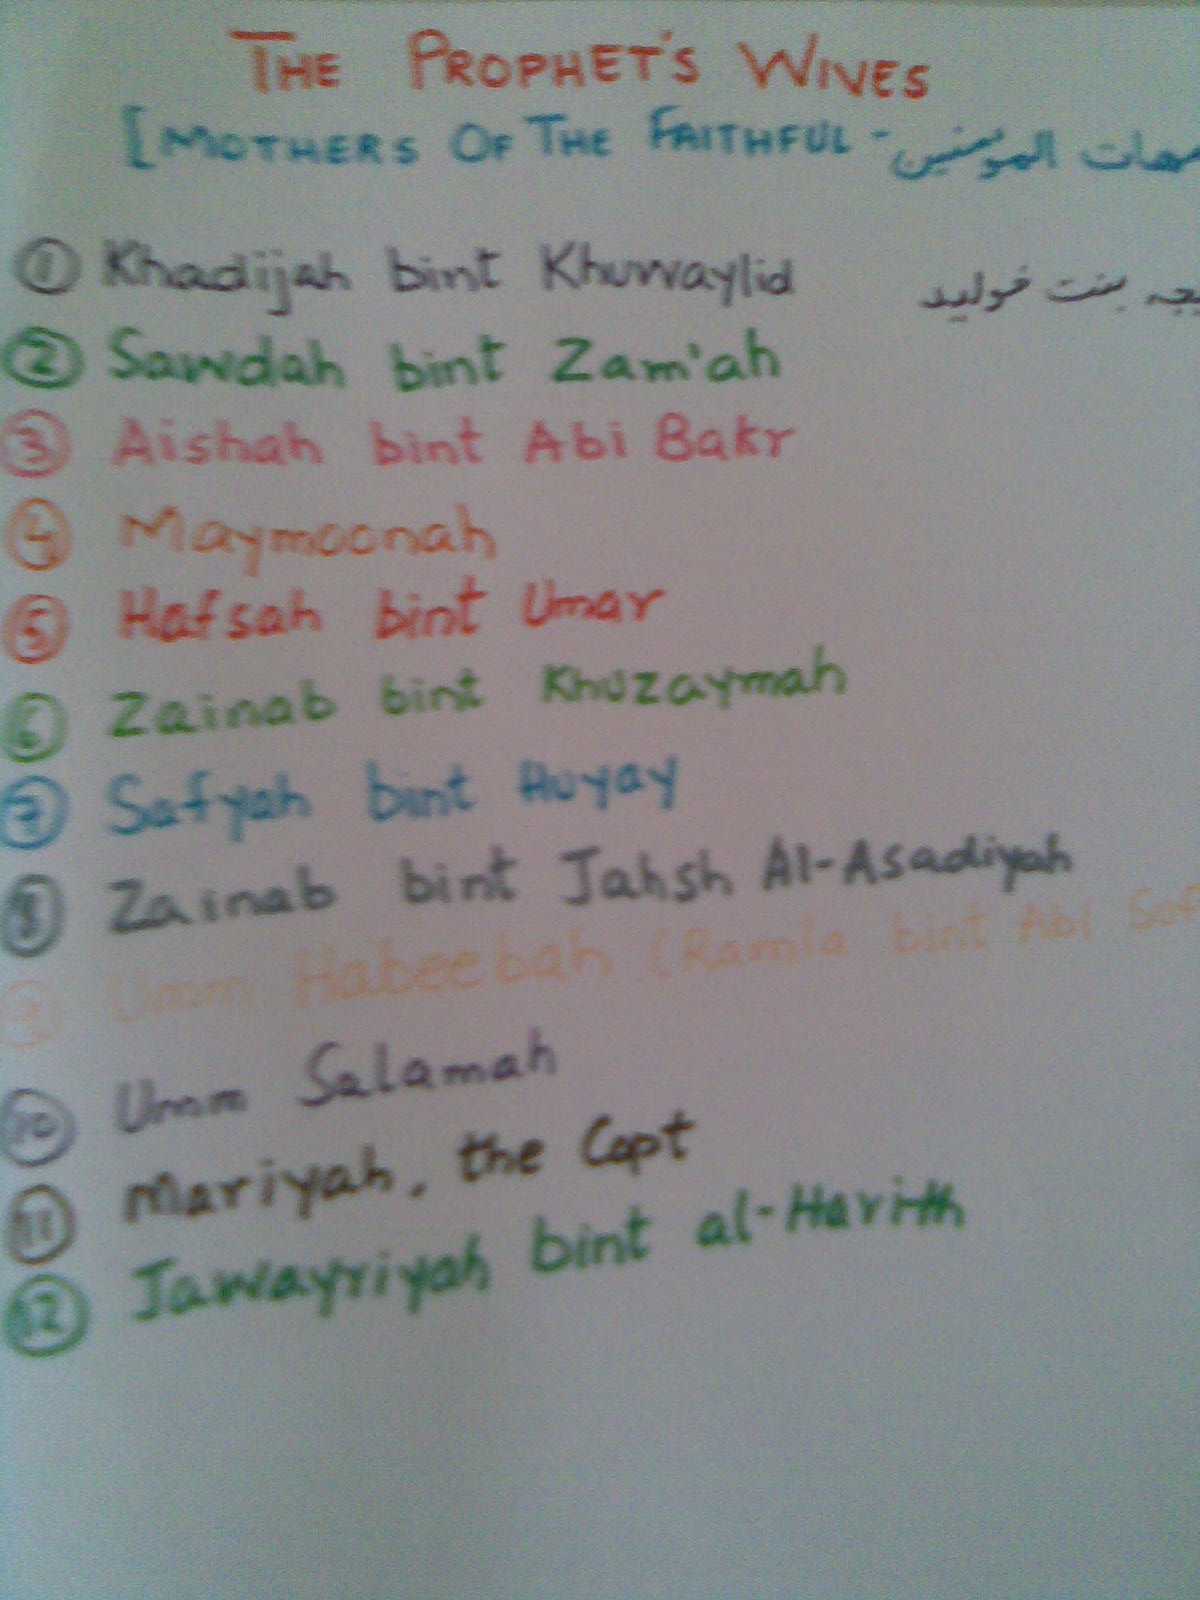 THE PROPHET'S WIVES
[MOTHERS OF THE FAITHFUL - مهات المؤمنين
1 Khadijah bint Khuwaylid يجه بنت خوليد
2 Sawdah bint Zam'ah
3 Aishah bint Abi Bakr
4 Maymoonah
5 Hafsah bint Umar
6 Zainab bint Khuzaymah
7 Safyah bint Huyay
8 Zainab bint Jahsh Al-Asadiyah
9 Umm Habeebah (Ramla bint Abi Sof
10 Umm Salamah
11 Mariyah, the Copt
12 Jawayriyah bint al-Harith